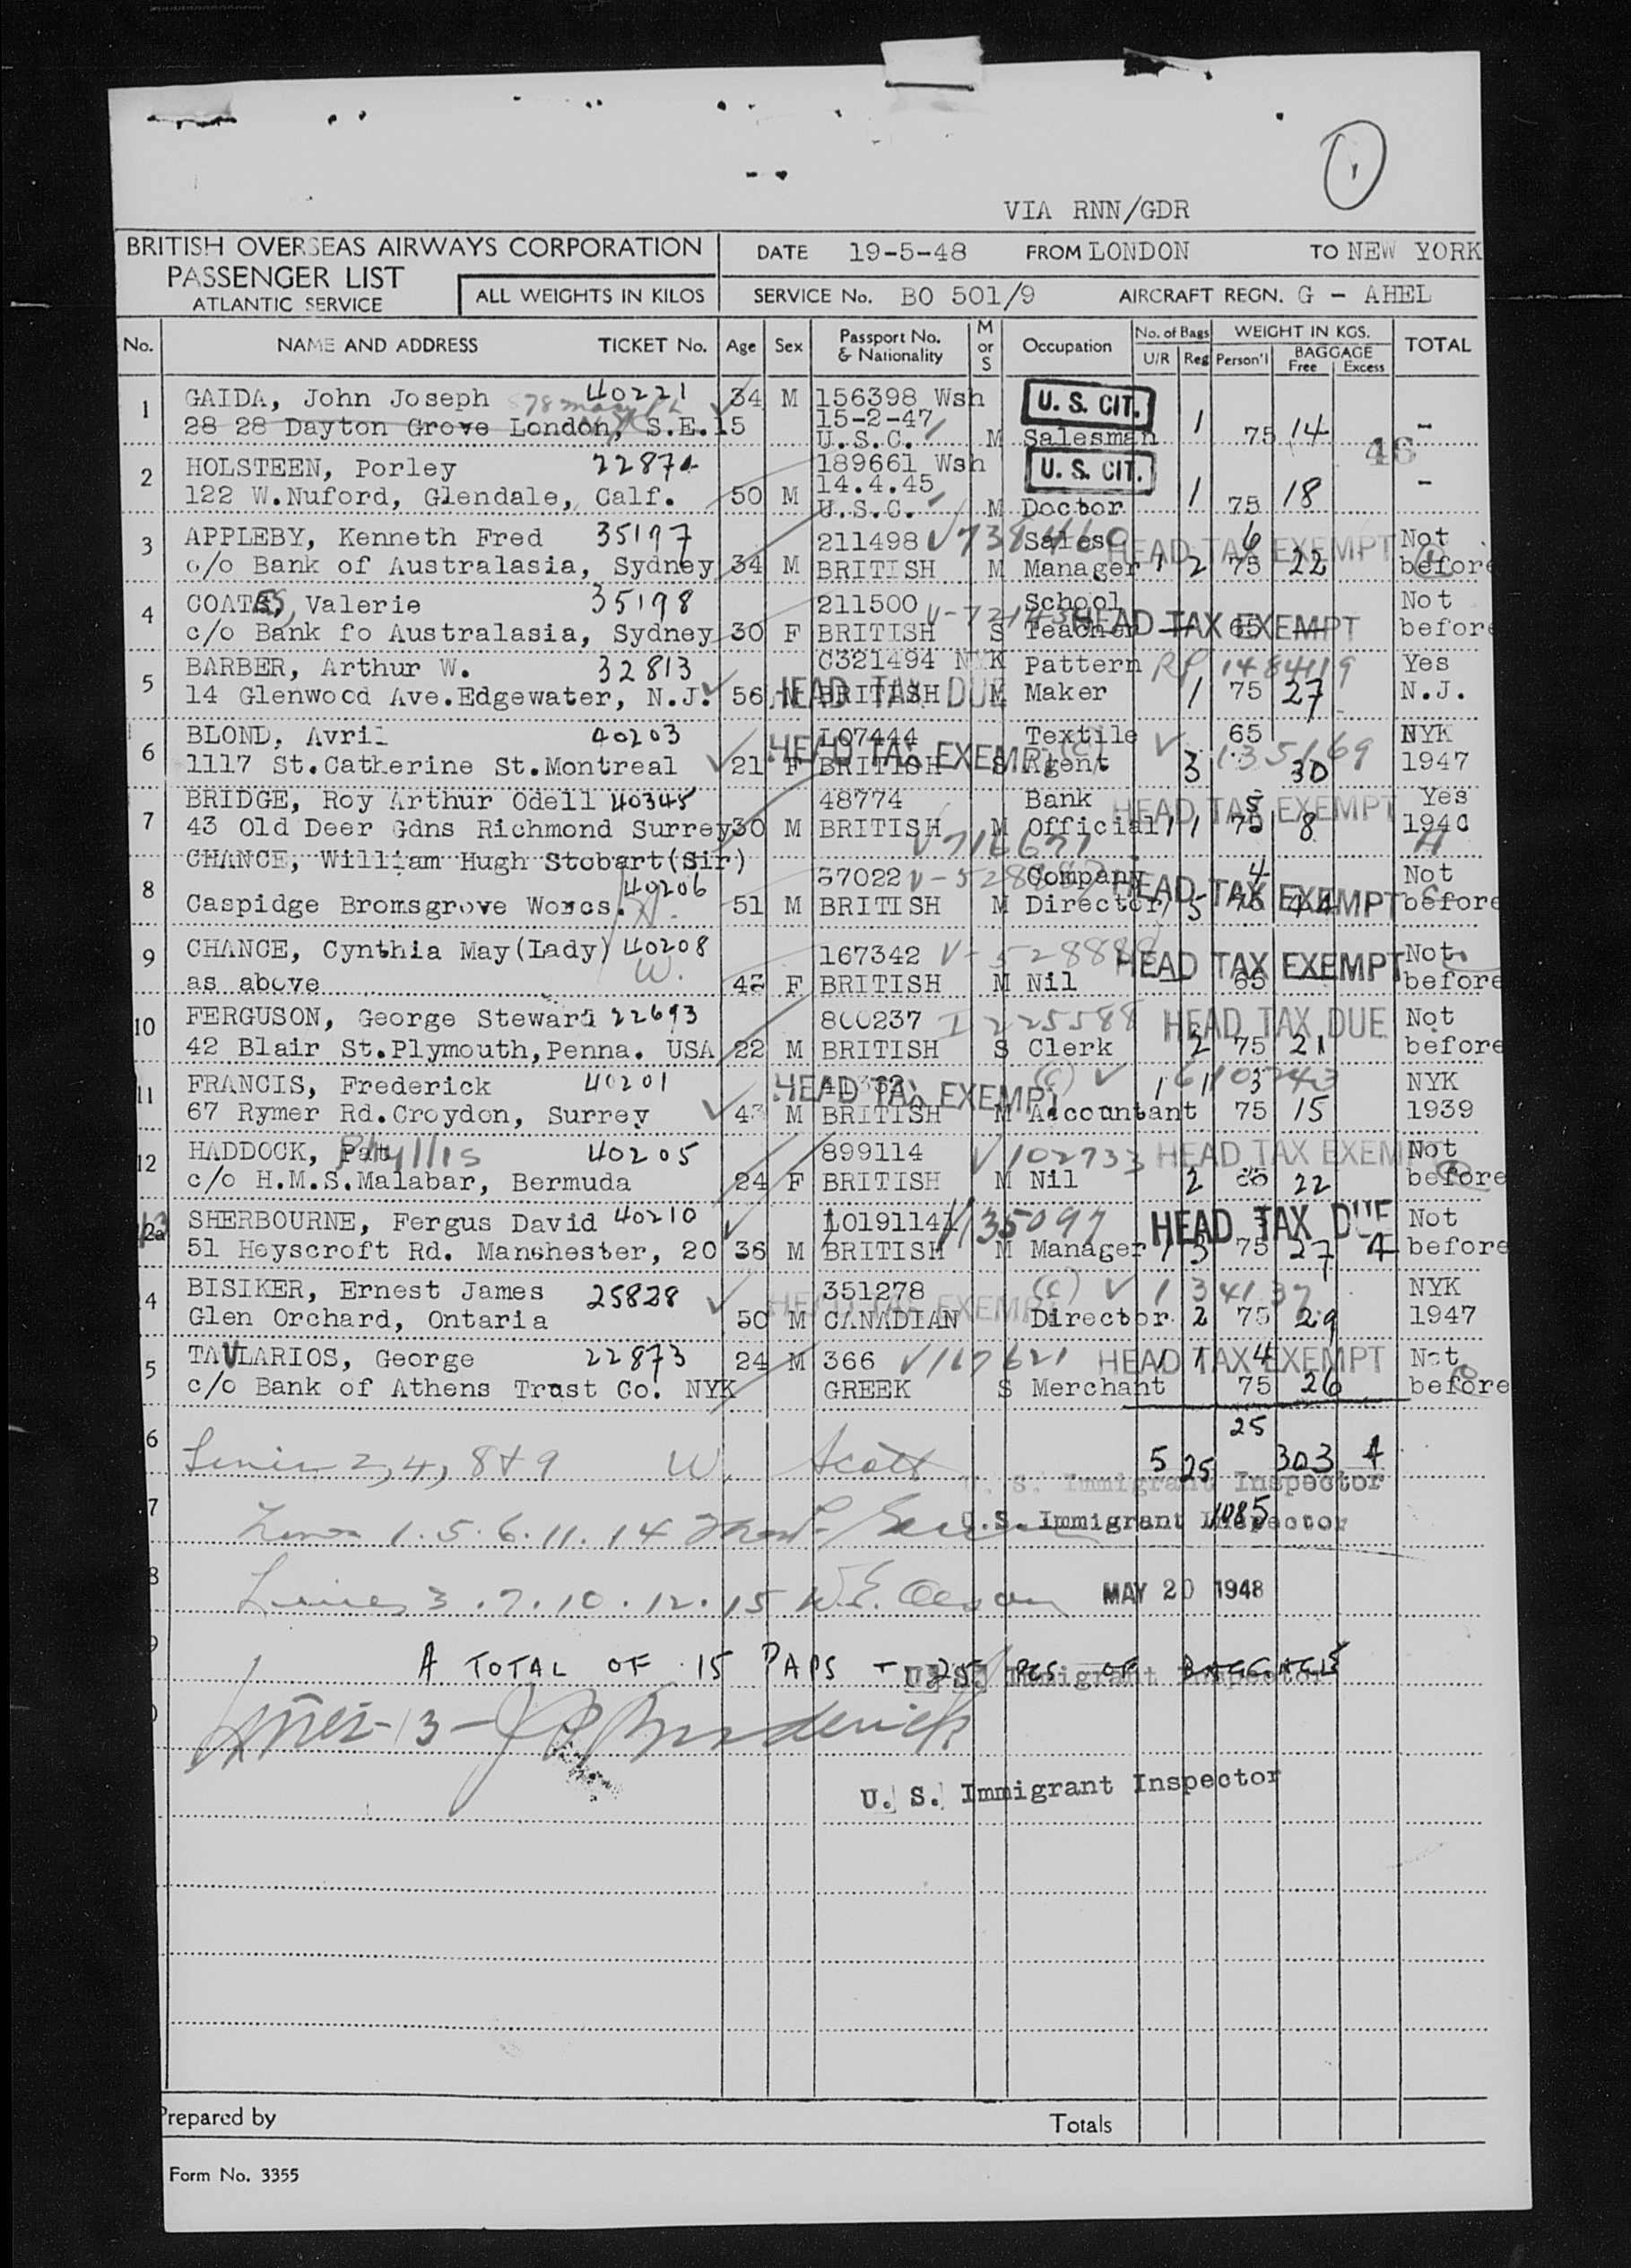 1
VIA RNN/GDR
BRITISH OVERSEAS AIRWAYS CORPORATION
PASSENGER LIST
ATLANTIC SERVICE
ALL WEIGHTS IN KILOS
DATE 19-5-48 FROM LONDON TO NEW YORK
SERVICE No. BO 501/9 AIRCRAFT REGN. G - AHEL
No. NAME AND ADDRESS TICKET No. Age Sex Passport No. & Nationality M or S Occupation No. of Bags U/R Reg WEIGHT IN KGS. Person'l BAGGAGE Free Excess TOTAL
1 GAIDA, John Joseph 40221 34 M 156398 Wsh U. S. CIT.
28 28 Dayton Grove London, S.E.15 15-2-47 1 75 14 -
U.S.C. M Salesman 46
2 HOLSTEEN, Porley 22874 189661 Wsh U. S. CIT.
122 W.Nuford, Glendale, Calf. 50 M 14.4.45 1 75 18 -
U.S.C. M Doctor
3 APPLEBY, Kenneth Fred 35197 211498 Sales 6 HEAD TAX EXEMPT Not
c/o Bank of Australasia, Sydney 34 M BRITISH M Manager 1 2 75 22 before
4 COATES, Valerie 35198 211500 School HEAD TAX EXEMPT Not
c/o Bank fo Australasia, Sydney 30 F BRITISH S Teacher 65 before
5 BARBER, Arthur W. 32813 C321494 NYK Pattern RP 1484119 Yes
14 Glenwood Ave.Edgewater, N.J. 56 M BRITISH HEAD TAX DUE M Maker 1 75 27 N.J.
6 BLOND, Avril 40203 L07444 Textile 65 NYK
1117 St.Catherine St.Montreal 21 F BRITISH HEAD TAX EXEMPT S Agent 3 V 135169 30 1947
7 BRIDGE, Roy Arthur Odell 40345 48774 Bank HEAD TAX EXEMPT 5 Yes
43 Old Deer Gdns Richmond Surrey 30 M BRITISH M Official 1 1 75 8 1940
V716671
8 CHANCE, William Hugh Stobart(Sir)
40206 37022 Company 4 HEAD TAX EXEMPT Not
Caspidge Bromsgrove Worcs. 51 M BRITISH M Director 1 5 75 44 before
9 CHANCE, Cynthia May(Lady) 40208 167342 V-528888 HEAD TAX EXEMPT Not
as above W. 43 F BRITISH M Nil 65 before
10 FERGUSON, George Steward 22693 800237 I 225588 HEAD TAX DUE Not
42 Blair St.Plymouth,Penna. USA 22 M BRITISH S Clerk 2 75 21 before
11 FRANCIS, Frederick 40201 HEAD TAX EXEMPT (C) V 1 1 3 NYK
67 Rymer Rd.Croydon, Surrey 43 M BRITISH M Accountant 75 15 1939
12 HADDOCK, Phyllis 40205 899114 V102733 HEAD TAX EXEMPT Not
c/o H.M.S.Malabar, Bermuda 24 F BRITISH M Nil 2 65 22 before
13 SHERBOURNE, Fergus David 40210 L0191141 V135097 HEAD TAX DUE Not
51 Heyscroft Rd. Manchester, 20 36 M BRITISH M Manager 1 3 75 27 4 before
4 BISIKER, Ernest James 25828 351278 HEAD TAX EXEMPT (C) V 134137 NYK
Glen Orchard, Ontaria 50 M CANADIAN Director 2 75 29 1947
5 TAVLARIOS, George 22873 24 M 366 V167621 HEAD TAX EXEMPT 1 1 4 Not
c/o Bank of Athens Trust Co. NYK GREEK S Merchant 75 26 before
25
6 Lines 2, 4, 8 & 9 W. Scott 5 25 303 4
U. S. Immigrant Inspector
7 Lines 1. 5. 6. 11. 14 U.S. Immigrant Inspector 1085
8 Lines 3. 7. 10. 12. 15 W.E. Olson MAY 20 1948
9 A TOTAL OF 15 PAPS - 25 PCS OF BAGGAGE
U. S. Immigrant Inspector
Lines - 13 - Broderick
U. S. Immigrant Inspector
Prepared by Totals
Form No. 3355